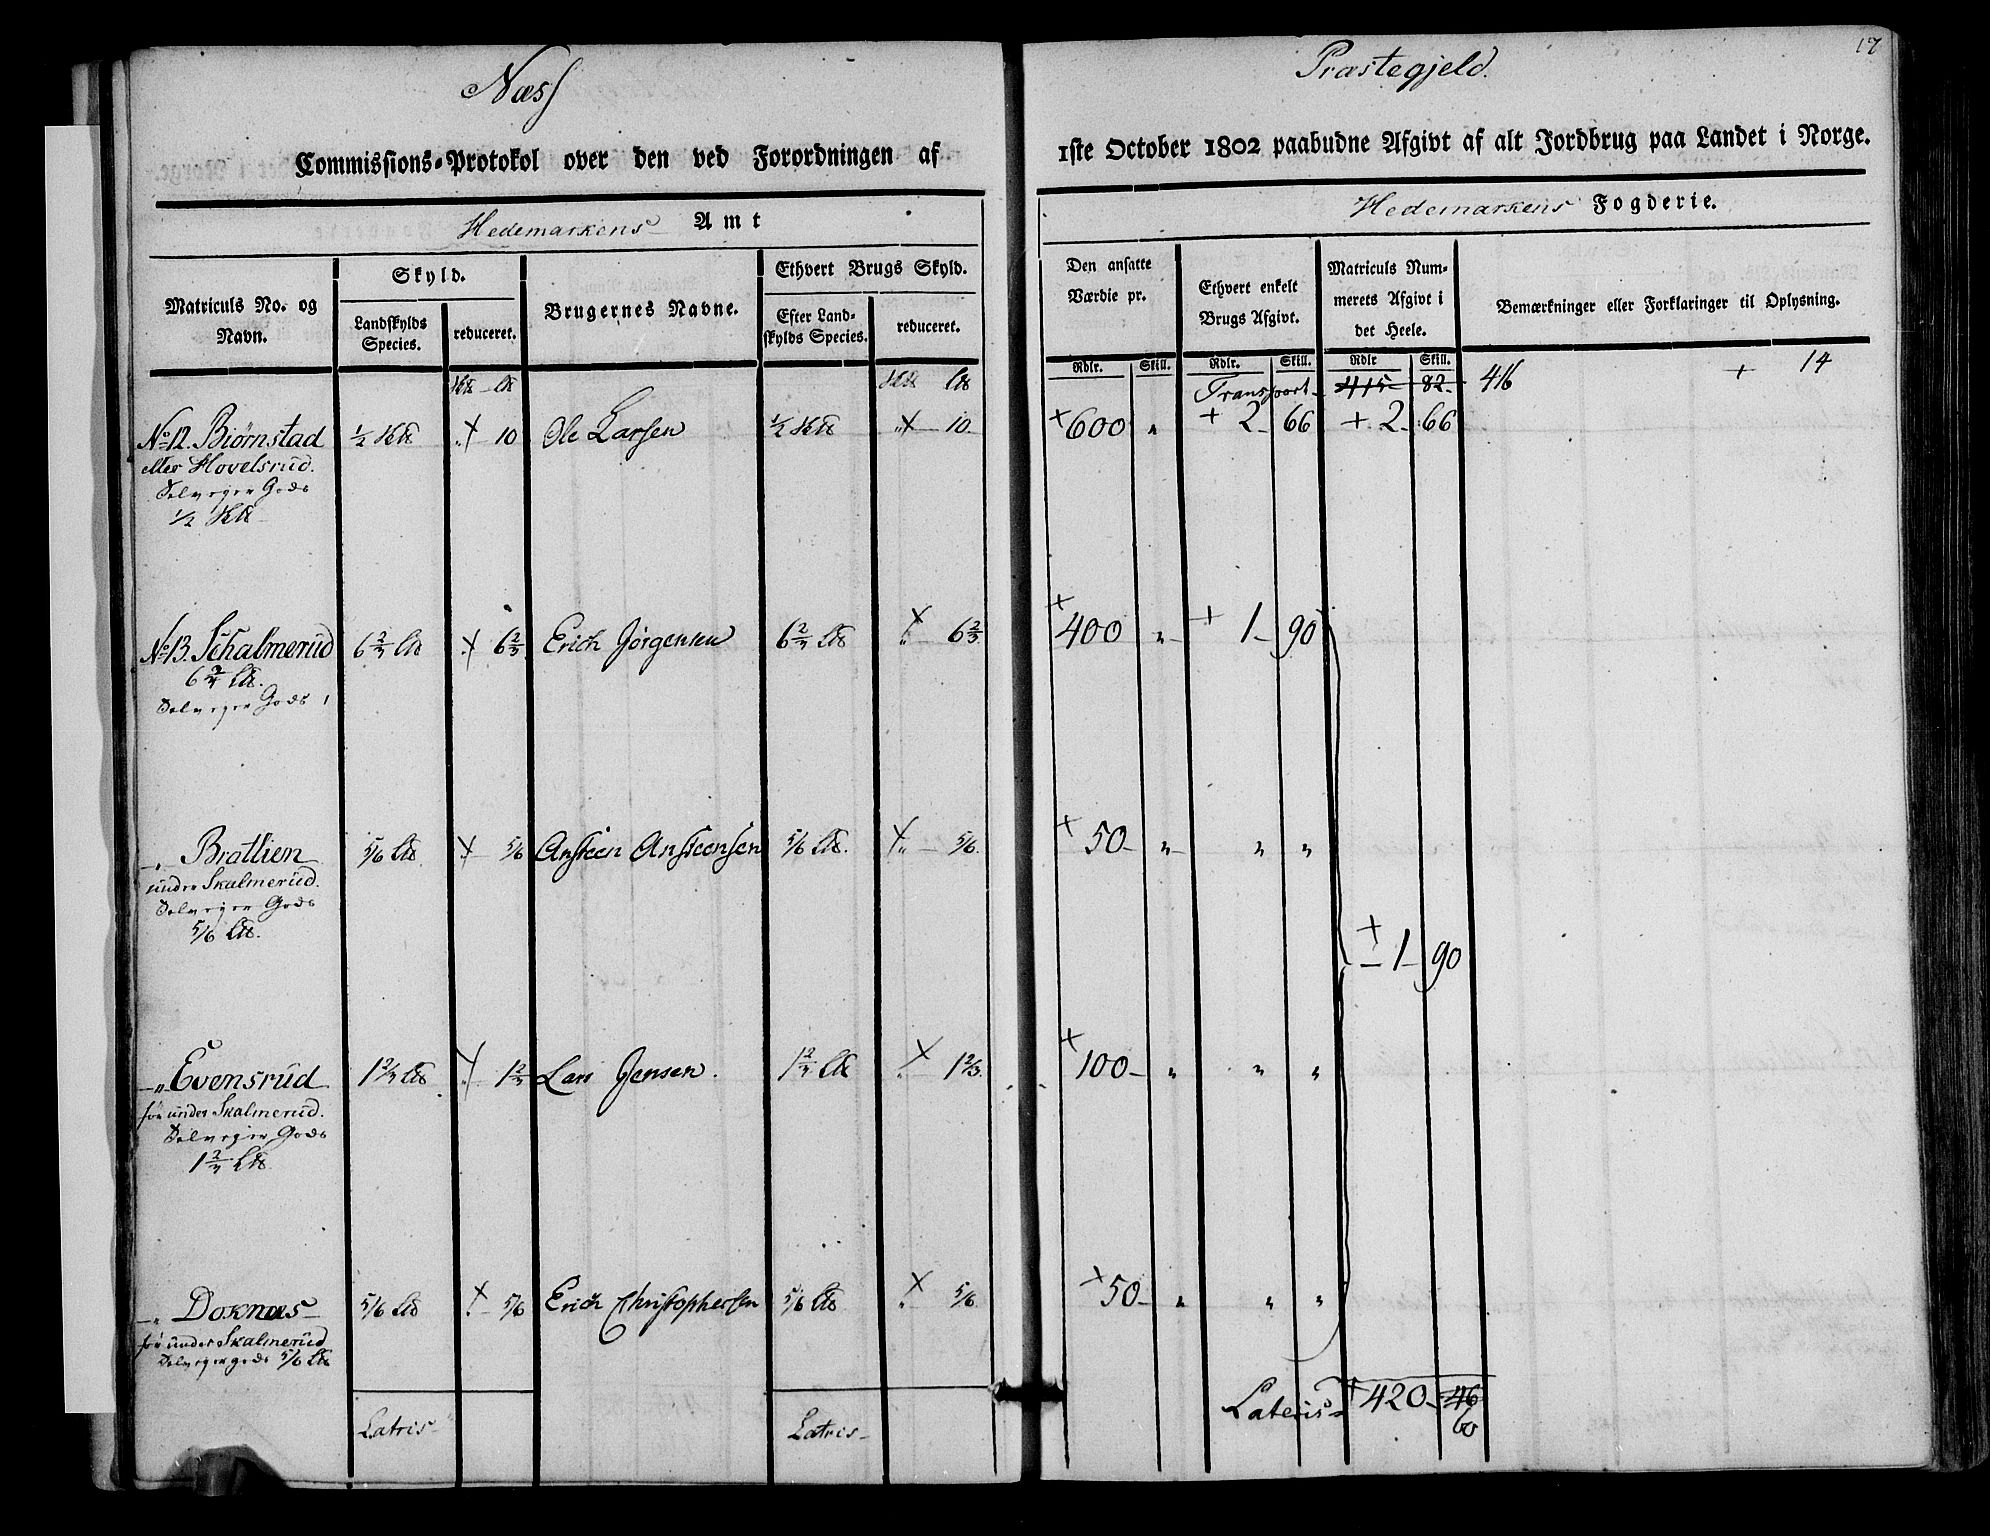 Næss
Præstegjeld.
17
Commissions-Protokol over den ved Forordningen af
1ste October 1802 paabudne Afgivt af alt Jordbrug paa Landet i Norge.
Hedemarkens Amt
Hedemarkens Fogderie.
Matriculs No. og Navn.
Skyld.
Landskylds Species.
reduceret.
Brugernes Navne.
Ethvert Brugs Skyld.
Efter Landskylds Species.
reduceret.
Den ansatte Værdie pr.
Ethvert enkelt Brugs Afgivt.
Matriculs Nummerets Afgivt i det Heele.
Bemærkninger eller Forklaringer til Oplysning.
Rdlr. Skill. Rdlr. Skill. Rdlr Skill.
Transport 415 82 416 + 14
No 12. Biørnstad ½ 10 Ole Larsen ½ 10 + 600 " + 2 66 + 2 66
eller Hovelsrud.
Selveger Gods
½
No 13. Schalmerud 6⅔ 6⅔ Erich Jørgensen 6⅔ 6⅔ + 400 " + 1 90
6⅔
Selveger Gods
" Bratlien 5/6 5/6 Ansteen Ansteensen 5/6 5/6 + 50 " " "
under Skalmerud.
Selveger Gods
5/6
+ 1 90
" Evensrud 1⅔ 1⅔ Lars Jensen. 1⅔ 1⅔ + 100 " " "
før under Skalmerud.
Selveger Gods
1⅔
" Doknæs 5/6 5/6 Erich Christophersen 5/6 5/6 + 50 " " "
før under Skalmerud
Selveger gods 5/6
Latris
Latris
Lateris + 420 46
60